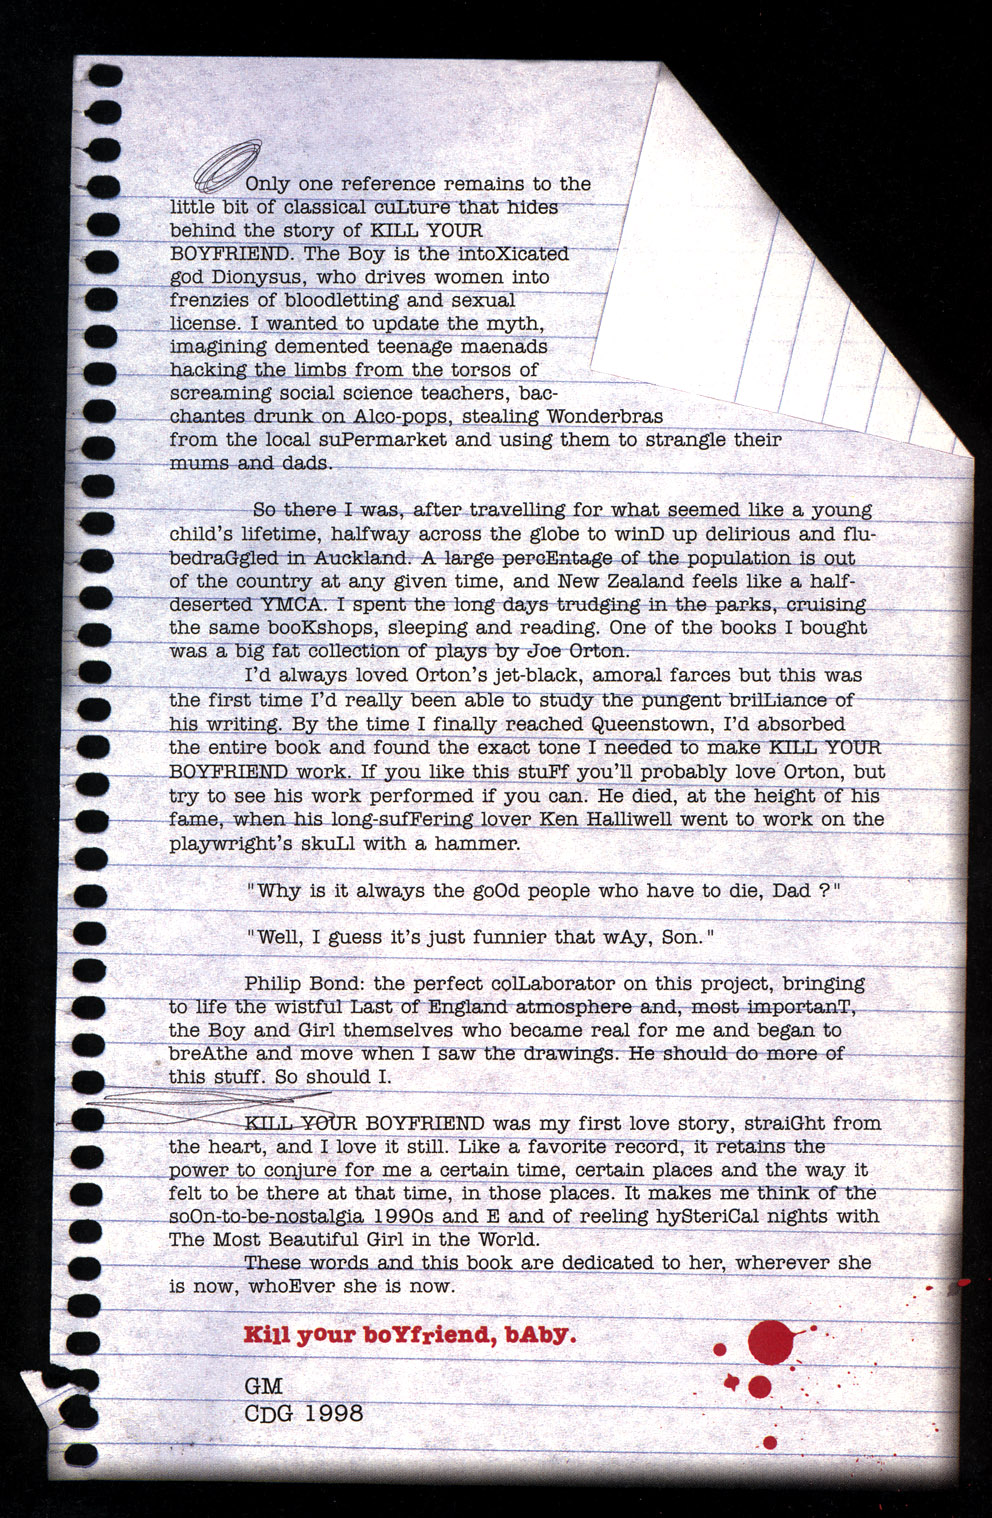 Only one reference remains to the
little bit of classical cuLture that hides
behind the story of KILL YOUR
BOYFRIEND. The Boy is the intoXicated
god Dionysus, who drives women into
frenzies of bloodletting and sexual
license. I wanted to update the myth,
imagining demented teenage maenads
hacking the limbs from the torsos of
screaming social science teachers, bac-
chantes drunk on Alco-pops, stealing Wonderbras
from the local suPermarket and using them to strangle their
mums and dads.
So there I was, after travelling for what seemed like a young
child's lifetime, halfway across the globe to winD up delirious and flu-
bedraGgled in Auckland. A large percEntage of the population is out
of the country at any given time, and New Zealand feels like a half-
deserted YMCA. I spent the long days trudging in the parks, cruising
the same booKshops, sleeping and reading. One of the books I bought
was a big fat collection of plays by Joe Orton.
I'd always loved Orton's jet-black, amoral farces but this was
the first time I'd really been able to study the pungent brilLiance of
his writing. By the time I finally reached Queenstown, I'd absorbed
the entire book and found the exact tone I needed to make KILL YOUR
BOYFRIEND work. If you like this stuFf you'll probably love Orton, but
try to see his work performed if you can. He died, at the height of his
fame, when his long-sufFering lover Ken Halliwell went to work on the
playwright's skuLl with a hammer.
"Why is it always the goOd people who have to die, Dad ?"
"Well, I guess it's just funnier that wAy, Son."
Philip Bond: the perfect colLaborator on this project, bringing
to life the wistful Last of England atmosphere and, most importanT,
the Boy and Girl themselves who became real for me and began to
breAthe and move when I saw the drawings. He should do more of
this stuff. So should I.
KILL YOUR BOYFRIEND was my first love story, straiGht from
the heart, and I love it still. Like a favorite record, it retains the
power to conjure for me a certain time, certain places and the way it
felt to be there at that time, in those places. It makes me think of the
soOn-to-be-nostalgia 1990s and E and of reeling hySteriCal nights with
The Most Beautiful Girl in the World.
These words and this book are dedicated to her, wherever she
is now, whoEver she is now.
Kill yOur boYfriend, bAby.
GM
CDG 1998